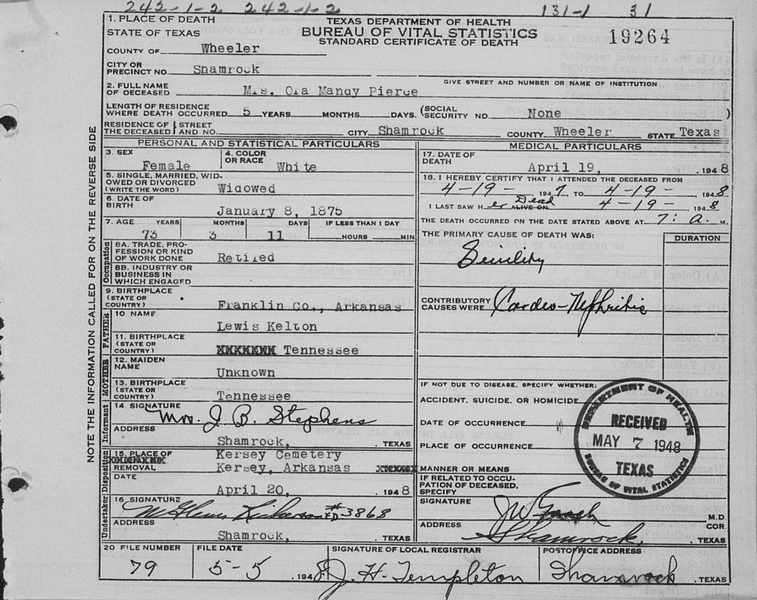 242-1-2 242-1-2 131-1 31
1. PLACE OF DEATH
STATE OF TEXAS
TEXAS DEPARTMENT OF HEALTH
BUREAU OF VITAL STATISTICS
STANDARD CERTIFICATE OF DEATH
19264
COUNTY OF Wheeler
CITY OR
PRECINCT NO. Shamrock
GIVE STREET AND NUMBER OR NAME OF INSTITUTION
2. FULL NAME
OF DECEASED Mrs. Ora Mandy Pierce
LENGTH OF RESIDENCE
WHERE DEATH OCCURRED 5 YEARS MONTHS DAYS. (SOCIAL SECURITY NO. None
RESIDENCE OF STREET
THE DECEASED AND NO. CITY Shamrock COUNTY Wheeler STATE Texas
PERSONAL AND STATISTICAL PARTICULARS
3. SEX Female
4. COLOR
OR RACE White
5. SINGLE, MARRIED, WID-
OWED OR DIVORCED
(WRITE THE WORD) Widowed
6. DATE OF
BIRTH January 8, 1875
7. AGE YEARS MONTHS DAYS IF LESS THAN 1 DAY
73 3 11 HOURS MIN.
Occupation
8A. TRADE, PRO-
FESSION OR KIND
OF WORK DONE Retired
8B. INDUSTRY OR
BUSINESS IN
WHICH ENGAGED
9. BIRTHPLACE
(STATE OR
COUNTRY) Franklin Co., Arkansas
FATHER
10 NAME
Lewis Kelton
11. BIRTHPLACE
(STATE OR
COUNTRY) XXXXXXX Tennessee
MOTHER
12. MAIDEN
NAME Unknown
13. BIRTHPLACE
(STATE OR
COUNTRY) Tennessee
Informant
14. SIGNATURE Mrs. J. B. Stephens
ADDRESS
Shamrock, , TEXAS
Disposition
15. PLACE OF
REMOVAL
Kersey Cemetery
Kersey, Arkansas
DATE
April 20, 1948
Undertaker
16. SIGNATURE #3868
ADDRESS
Shamrock, , TEXAS
MEDICAL PARTICULARS
17. DATE OF
DEATH April 19, 1948
18. I HEREBY CERTIFY THAT I ATTENDED THE DECEASED FROM
4-19- 1947 TO 4-19- 1948
I LAST SAW H er Dead ALIVE ON 4-19- 1948
THE DEATH OCCURRED ON THE DATE STATED ABOVE AT 7: a. M.
THE PRIMARY CAUSE OF DEATH WAS: DURATION
Senility
CONTRIBUTORY
CAUSES WERE Cardeo-Nephritis
IF NOT DUE TO DISEASE, SPECIFY WHETHER:
ACCIDENT, SUICIDE, OR HOMICIDE
DATE OF OCCURRENCE
PLACE OF OCCURRENCE
MANNER OR MEANS
IF RELATED TO OCCU-
PATION OF DECEASED,
SPECIFY
SIGNATURE M.D
COR.
ADDRESS Shamrock, , TEXAS
DEPARTMENT OF HEALTH
RECEIVED
MAY 7 1948
TEXAS
BUREAU OF VITAL STATISTICS
20 FILE NUMBER FILE DATE SIGNATURE OF LOCAL REGISTRAR POSTOFFICE ADDRESS
79 5-5 1948 J. H. Templeton Shamrock TEXAS
NOTE THE INFORMATION CALLED FOR ON THE REVERSE SIDE